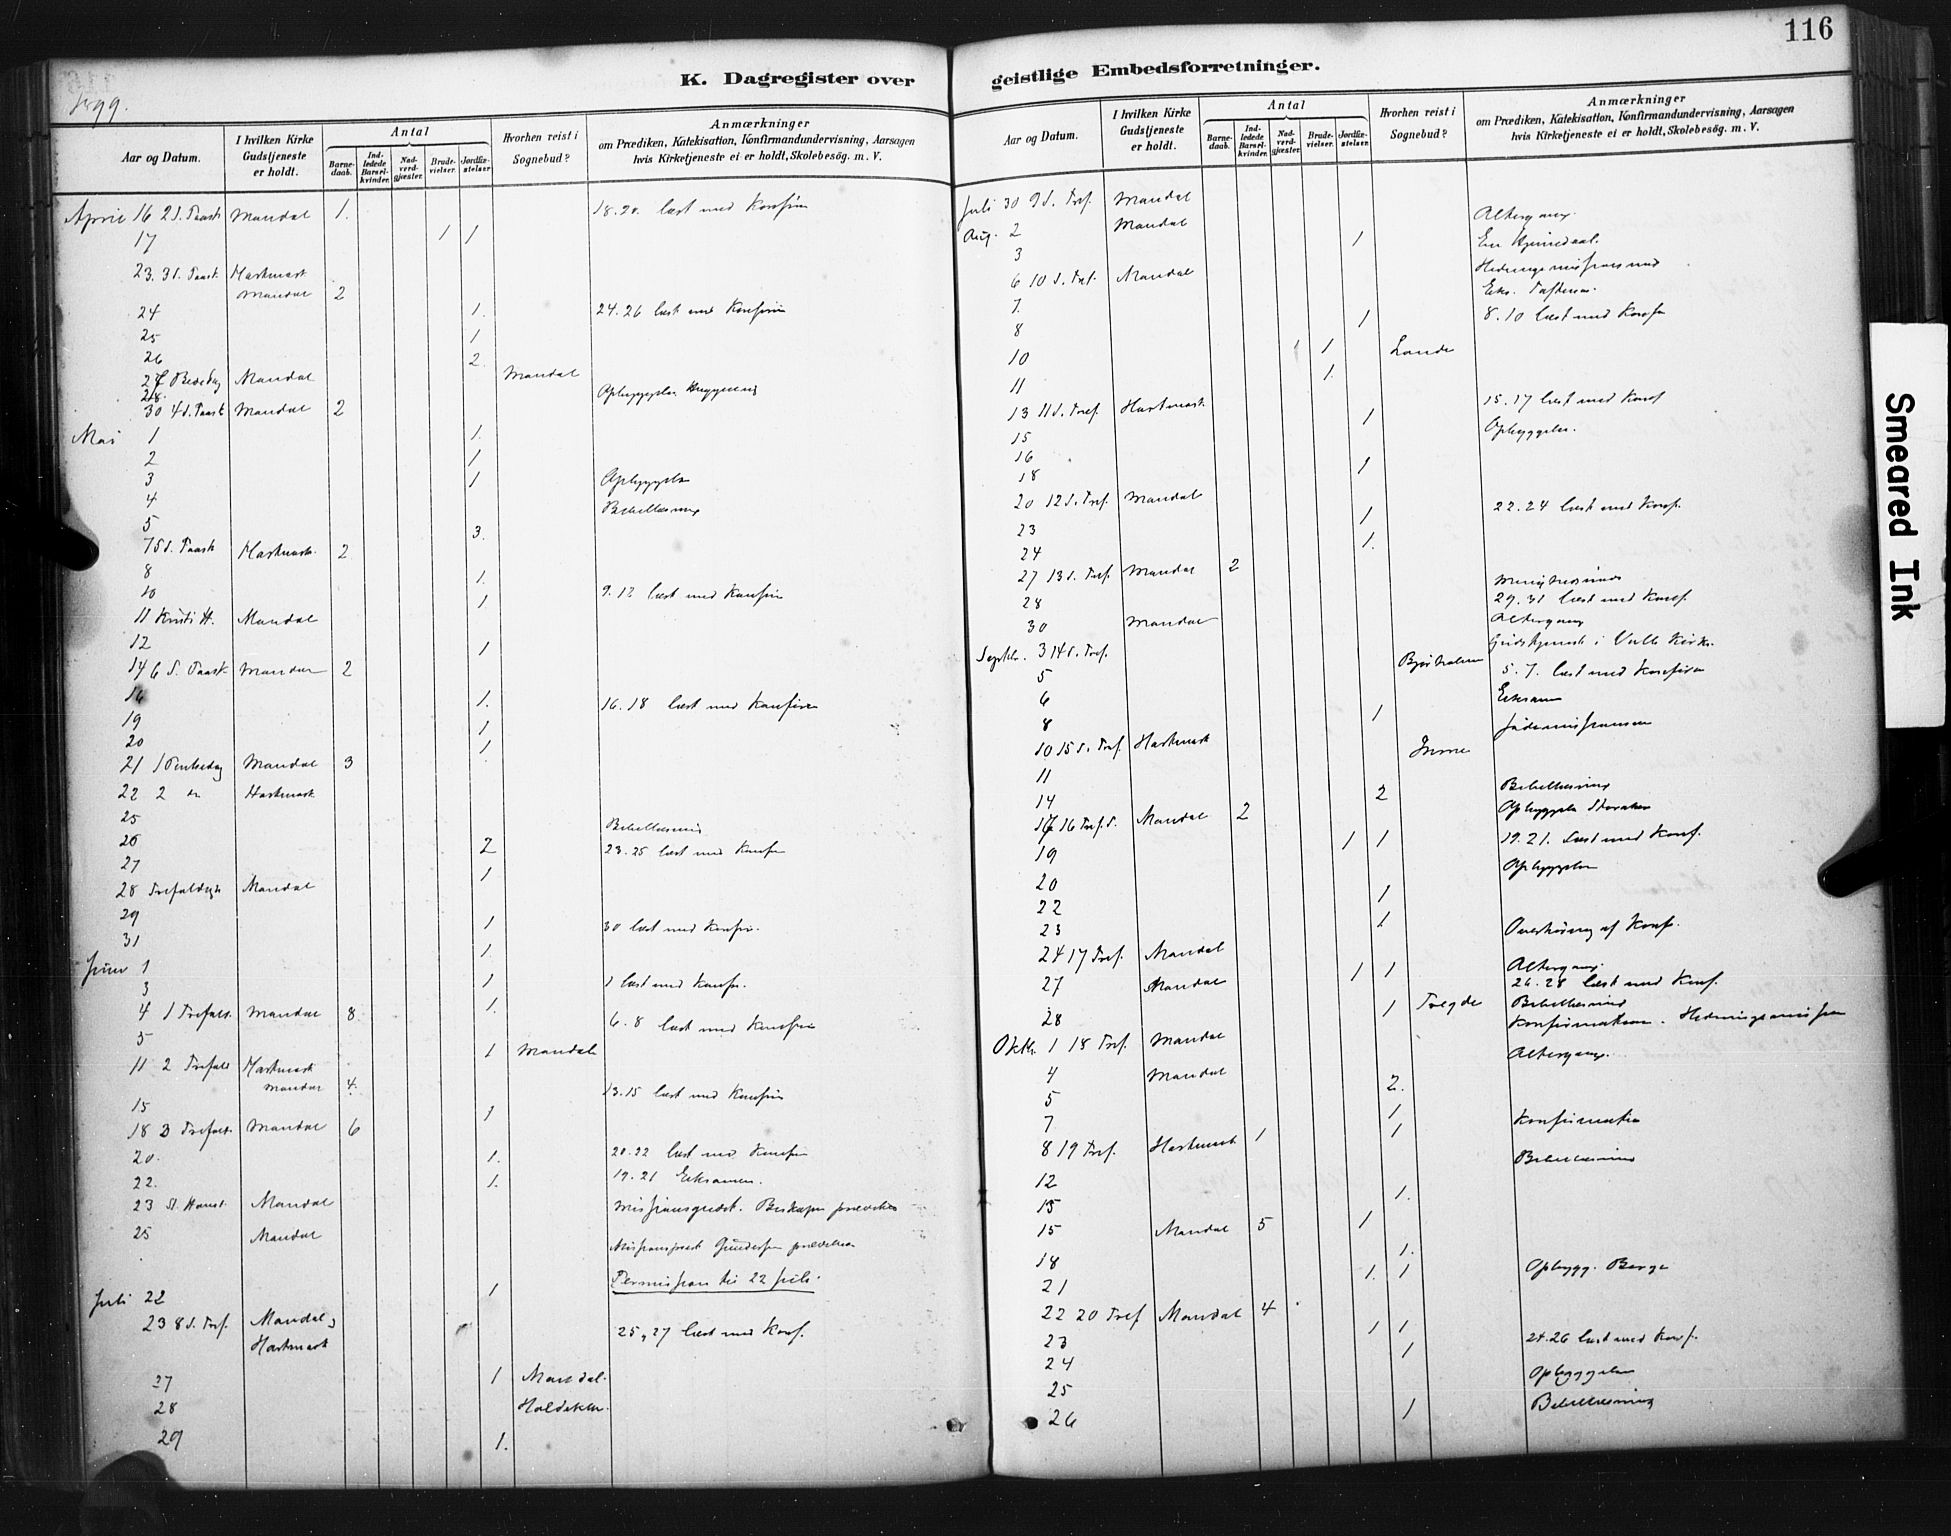 116
K. Dagregister over
1899.
Aar og Datum. I hvilken Kirke Gudstjeneste er holdt. Antal Barnedaab. Indledede Barselkvinder. Nadverdgjæster. Brudevielser. Jordfæstelser. Hvorhen reist i Sognebud? Anmærkninger om Prædiken, Katekisation, Konfirmandundervisning, Aarsagen hvis Kirketjeneste ei er holdt, Skolebesøg. m. V.
April 16 2 S. Paask Mandal 1. 18.20. læst med Konfirm
17 1 1
23. 3 S. Paask Hartmark
Mandal 2
24 1. 24.26 læst med Konfirm
25 1
26 2.
27 Bededag Mandal Mandal
28. Opbyggelse
30 4 S. Paask Mandal 2
Mai 1 1.
2 1
3 1 Opbyggelse
4 Bibellæsning
5 3.
7 5 S. Paask Hartmark. 2
8 1.
10 1 9.12 læst med Konfirm
11 Kristi H. Mandal
12 1
14 6 S. Paask. Mandal 2
16 1. 16.18 læst med Konfirm
19 1
20 1
21 1 Pintsedag Mandal 3
22 2 en Hartmark
25 Bibellæsning
26 2 23.25 læst med Konfirm
27 1
28 Trefoldigh Mandal
29 1 30 læst med Konfir.
31 1.
Juni 1 1
3 1. 1 læst med Konfir.
4 1 Trefold. Mandal 8. 6.8 læst med Konfirm
5 1 Mandal
11 2 Trefold Hartmark
Mandal 4. 13.15 læst med Konfirm
15 1
18 3 Trefold. Mandal 6
20. 1. 20.22 læst med Konfirm
22. 1. 19.21 Eksamen.
23 St. Hansd. Mandal Missionsgudst. Biskopen prædiket
25 Mandal Missionsprest Gundersen prædiket
Permission til 22 Juli.
Juli 22 1
23 8 S. Tref. Mandal,
Hartmark 25, 27 læst med Konf.
27 1 Mandal.
28
29 1.
geistlige Embedsforretninger.
Aar og Datum. I hvilken Kirke Gudstjeneste er holdt. Antal Barnedaab. Indledede Barselkvinder. Nadverdgjæster. Brudevielser. Jordfæstelser. Hvorhen reist i Sognebud? Anmærkninger om Prædiken, Katekisation, Konfirmandundervisning, Aarsagen hvis Kirketjeneste ei er holdt, Skolebesøg. m. V.
Juli 30 9 S. Tref. Mandal
Aug. 2 Mandal Altergang.
3 1
6 10 S. Tref. Mandal
7.
8 1 8.10 læst med Konf
10 1 1 Lande
11 1.
13 11 S. Tref. Hartmark. 15.17 læst med Konf
15 1 Opbyggelse.
16
18 1
20 12 S. Tref. Mandal 22.24 læst med Konf.
23 1
24 1.
27 13 S. Tref. Mandal 2
28 29.31 læst med Konf.
30 Mandal Altergang
Septbr. 3 14 S. Tref. Gudstjeneste i Valle Kirke
5 5.7. læst med Konfirm
6 Eksamen
8 1 Jødemissionen
10 15 S. Tref. Hartmark Imme
11
14 2 Bibellæsning
17 16 Tref. S. Mandal 2 Opbyggelse
19 1 1 19.21. læst med Konf.
20 Opbyggelse
22 1
23 1 Overhøring af Konf.
24 17 Tref. Mandal
27 Mandal 1 1 Altergang.
26.28 læst med Konf.
28 1 Tregde Bibellæsning
Oktbr. 1 18 Tref. Mandal Konfirmation. Hedningemission
4 Mandal Altergang.
5 2.
7 1 Konfirmation
8 19 Tref. Hartmark 1 1
12 Bibellæsning
13 1.
15 Mandal 5 1
18 1.
21 1. 1 Opbygg. Berge
22 20 Tref Mandal 4
23 1 1 24.26 læst med Konf.
24 1
25 Opbyggelse
26 1 Bibellæsning
Smeared Ink